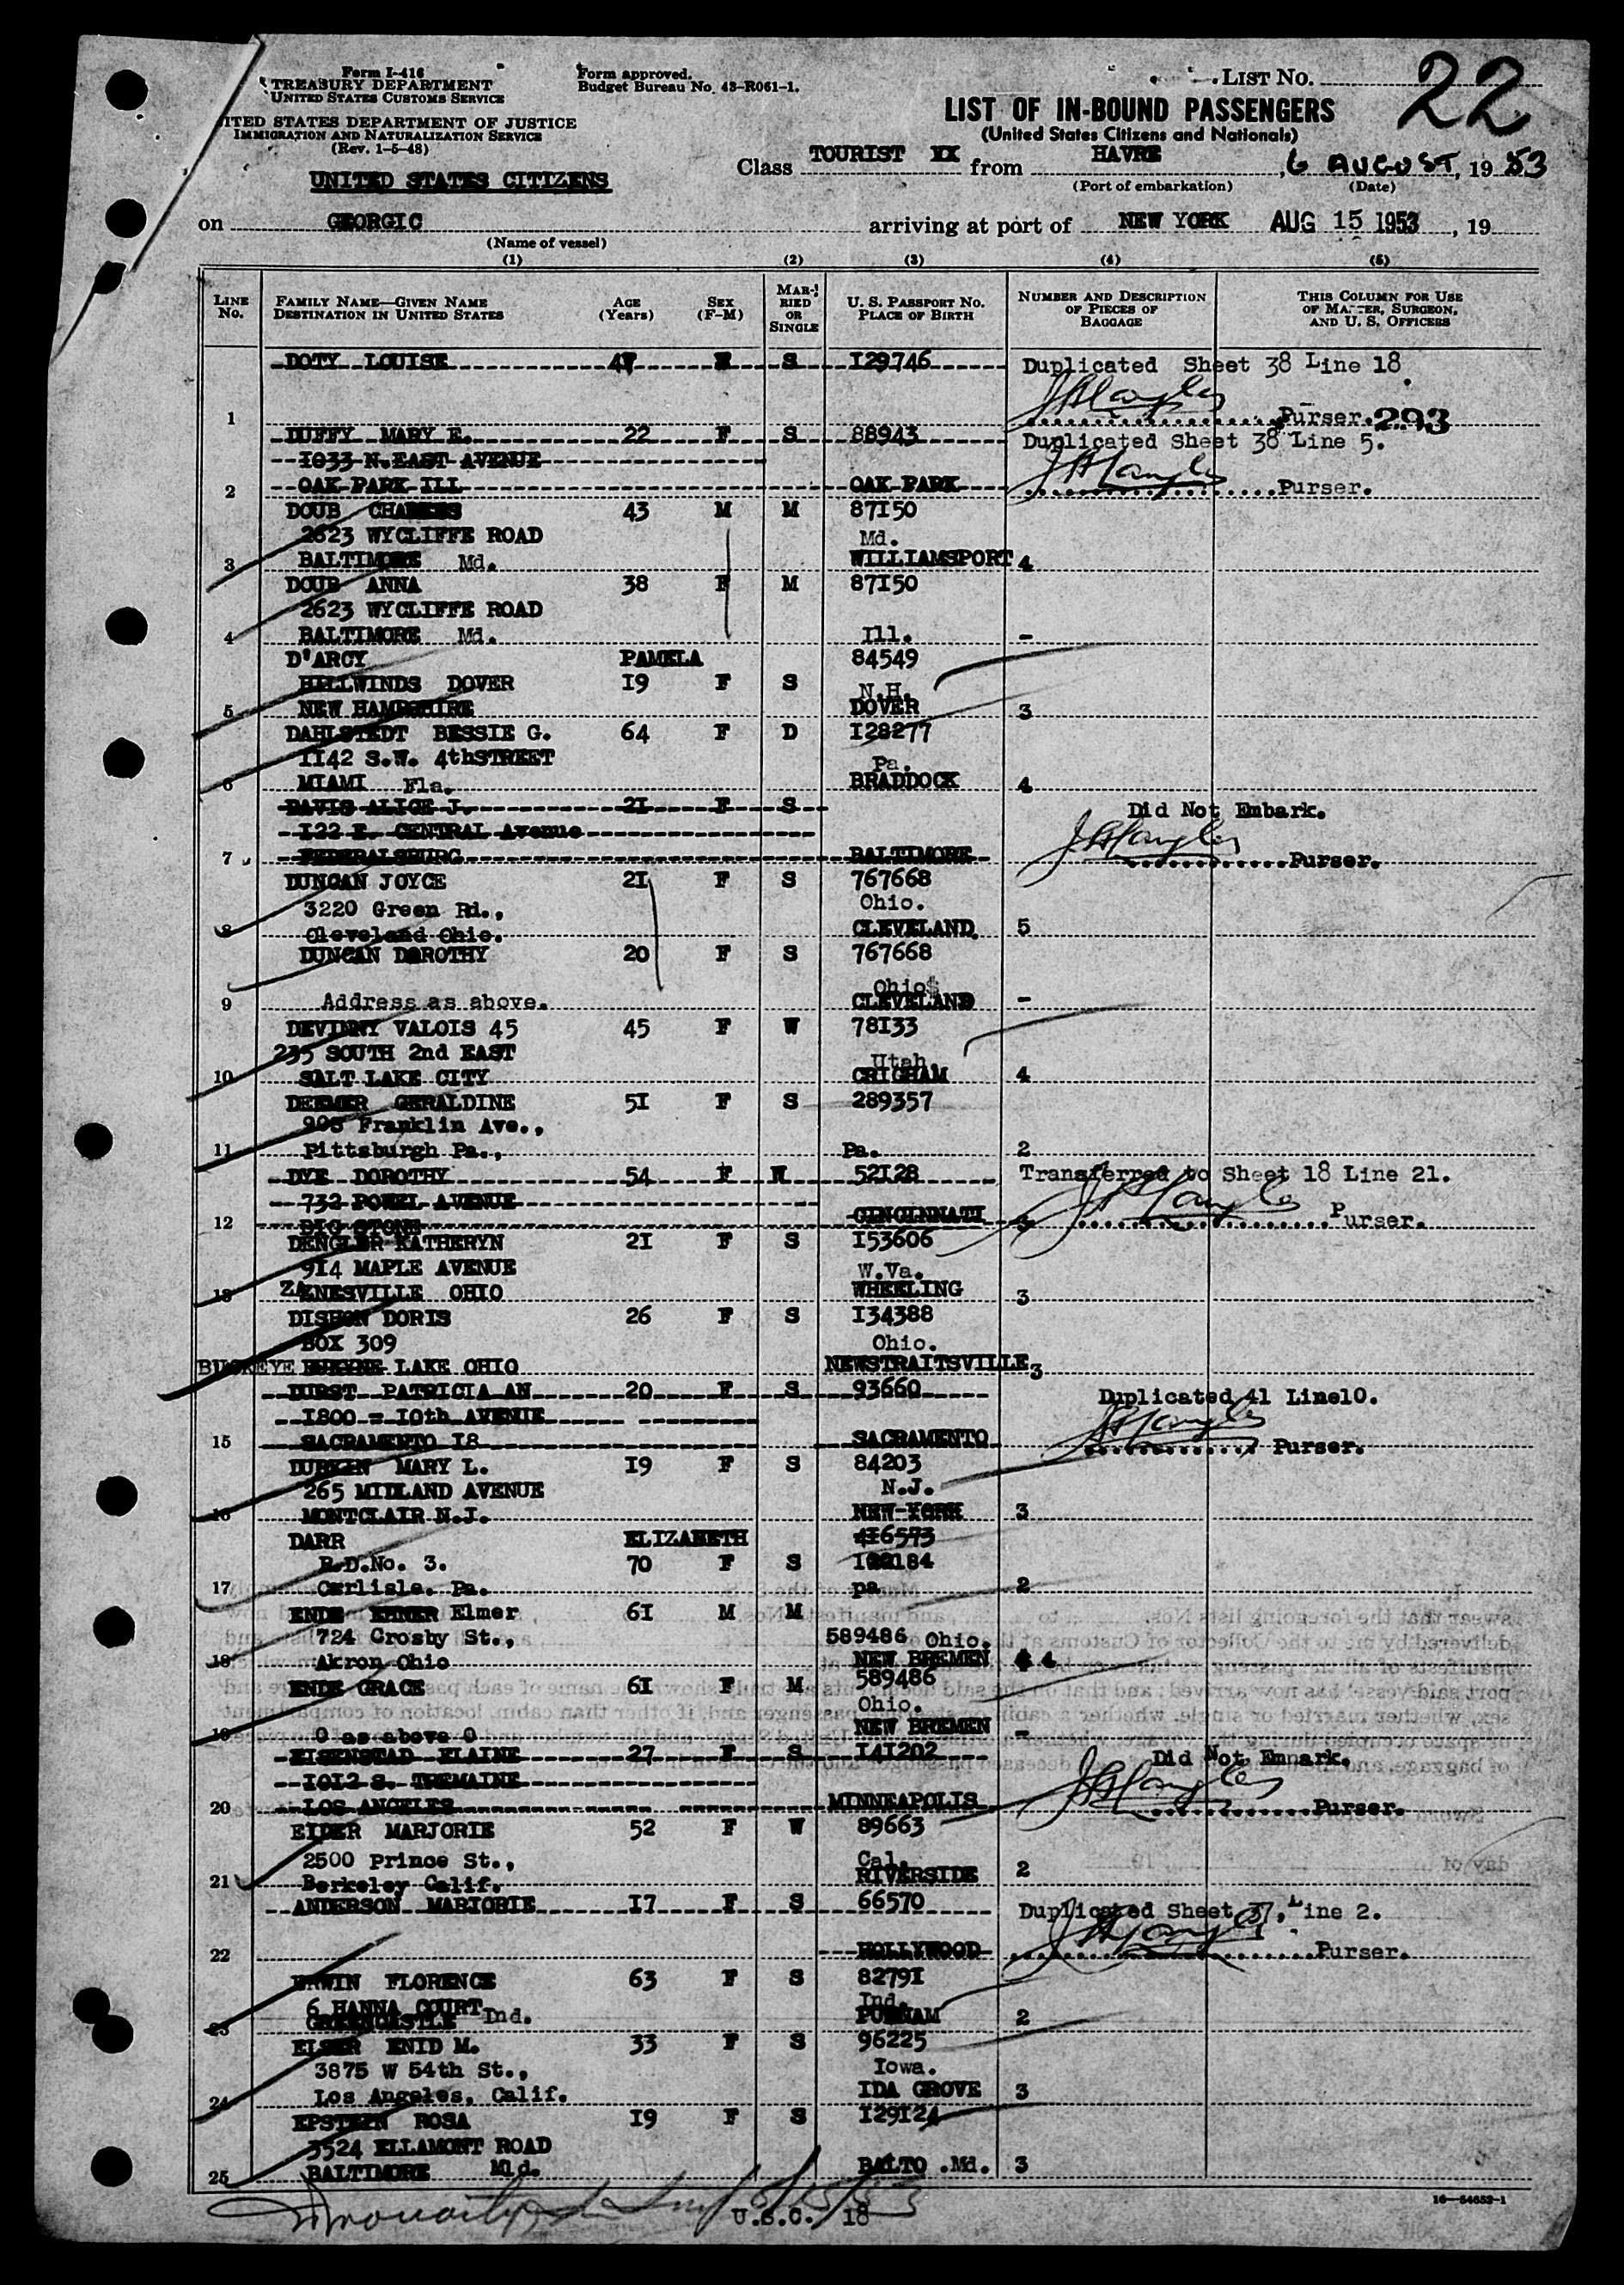 Form I-416
TREASURY DEPARTMENT
UNITED STATES CUSTOMS SERVICE
ITED STATES DEPARTMENT OF JUSTICE
IMMIGRATION AND NATURALIZATION SERVICE
(Rev. 1-5-48)
Form approved.
Budget Bureau No. 43-R061-1.
LIST NO. 22
LIST OF IN-BOUND PASSENGERS
(United States Citizens and Nationals)
UNITED STATES CITIZENS
Class TOURIST XX from HAVRE, 6 AUGUST, 19 53
(Port of embarkation) (Date)
on GEORGIC arriving at port of NEW YORK AUG 15 1953, 19
(Name of vessel)
(1) (2) (3) (4) (5)
LINE No. FAMILY NAME—GIVEN NAME DESTINATION IN UNITED STATES AGE (Years) SEX (F-M) MAR-RIED OR SINGLE U. S. PASSPORT NO. PLACE OF BIRTH NUMBER AND DESCRIPTION OF PIECES OF BAGGAGE THIS COLUMN FOR USE OF MASTER, SURGEON, AND U. S. OFFICERS
DOTY LOUISE S I29746 Duplicated Sheet 38 Line 18
1 Purser. 293
DUFFY MARY E. 22 F S 88943 Duplicated Sheet 38 Line 5.
I033 N.EAST AVENUE
2 OAK PARK ILL OAK PARK Purser.
DOUB CHARLES 43 M M 87I50
2623 WYCLIFFE ROAD Md.
3 BALTIMORE Md. WILLIAMSPORT 4
DOUB ANNA 38 F M 87I50
2623 WYCLIFFE ROAD
4 BALTIMORE Md. Ill. -
D'ARCY PAMELA 84549
HILLWINDS DOVER I9 F S N.H.
5 NEW HAMPSHIRE DOVER 3
DAHLSTEDT BESSIE G. 64 F D I28277
II42 S.W. 4thSTREET Pa.
6 MIAMI Fla. BRADDOCK 4
DAVIS ALICE J. 2I F S Did Not Embark.
I22 E. CENTRAL Avenue
7 FEDERALSBURG BALTIMORE Purser.
DUNCAN JOYCE 2I F S 767668
3220 Green Rd., Ohio.
8 Cleveland Ohio. CLEVELAND. 5
DUNCAN DOROTHY 20 F S 767668
Ohio$
9 Address as above. CLEVELAND -
DEVINNY VALOIS 45 45 F W 78I33
235 SOUTH 2nd EAST Utah
10 SALT LAKE CITY CRIGHAM 4
DEEMER GERALDINE 5I F S 289357
908 Franklin Ave.,
11 Pittsburgh Pa., Pa. 2
DYE DOROTHY 54 F W 52I28 Transferred to Sheet 18 Line 21.
732 POWEL AVENUE
12 BIG STONE CINCINNATI 3 Purser.
DENGLER KATHERYN 2I F S I53606
9I4 MAPLE AVENUE W.Va.
13 ZANESVILLE OHIO WHEELING 3
DISHON DORIS 26 F S I34388
BOX 309 Ohio.
BUCKEYE LAKE OHIO NEWSTRAITSVILLE 3
DURST PATRICIA AN 20 F S 93660 Duplicated 41 Line10.
I800 = I0th AVENIE
15 SACRAMENTO I8 SACRAMENTO Purser.
DURKIN MARY L. I9 F S 84203
265 MIDLAND AVENUE N.J.
16 MONTCLAIR N.J. NEW YORK 3
DARR ELIZABETH 4I6573
R.D.No. 3. 70 F S
17 Carlisle. Pa. pa 2
ENDE Elmer 6I M M
724 Crosby St., 589486 Ohio.
18 Akron Ohio NEW BREMEN 4
ENDE GRACE 6I F M 589486
Ohio.
19 O as above O NEW BREMEN -
EISENSTAD ELAINE 27 F S I4I202 Did Not Emnark.
I0I2 S. TREMAINE
20 LOS ANGELES MINNEAPOLIS Purser.
EIDER MARJORIE 52 F W 89663
2500 Prince St., Cal.
21 Berkeley Calif. RIVERSIDE 2
ANDERSON MARJORIE I7 F S 66570 Duplicated Sheet 37, Line 2.
22 HOLLYWOOD Purser.
ERWIN FLORENCE 63 F S 8279I
6 HANNA COURT Ind.
23 GREENCASTLE Ind. PUTNAM 2
ELSER ENID M. 33 F S 96225
3875 W 54th St., Iowa.
24 Los Angeles, Calif. IDA GROVE 3
EPSTEIN ROSA I9 F S I29I24
3524 ELLAMONT ROAD
25 BALTIMORE Mld. BALTO .Md. 3
U.S.C. 18
16—54652-1